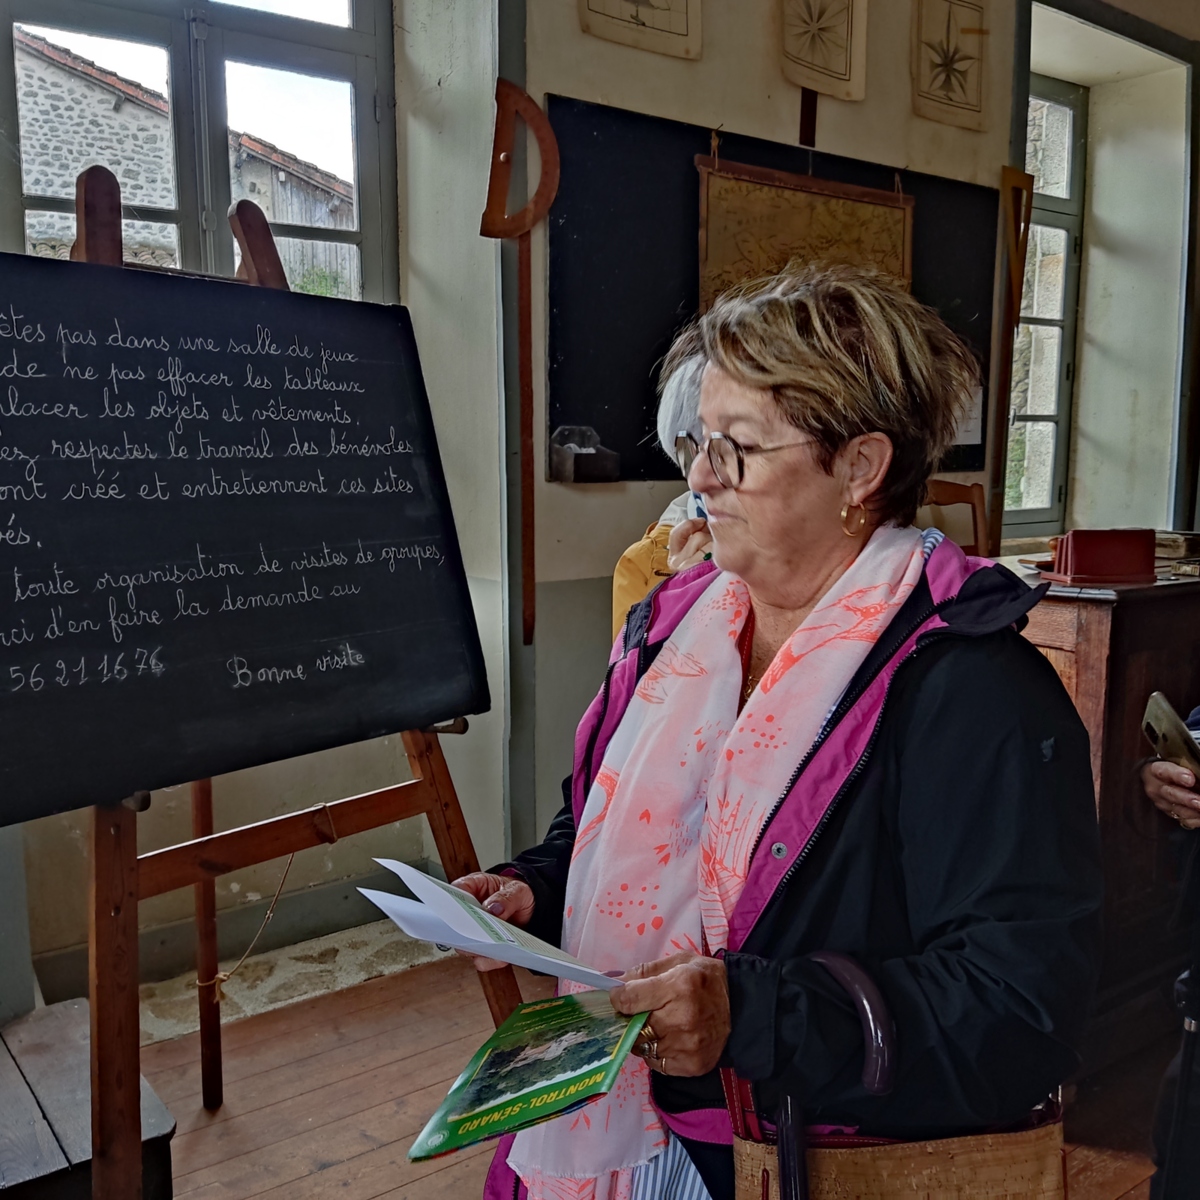 êtes pas dans une salle de jeux
de ne pas effacer les tableaux
placer les objets et vêtements.
ez respecter le travail des bénévoles
ont créé et entretiennent ces sites
és.
toute organisation de visites de groupes,
rci d'en faire la demande au
56 21 16 76 Bonne visite
MONTROL-SÉNARD